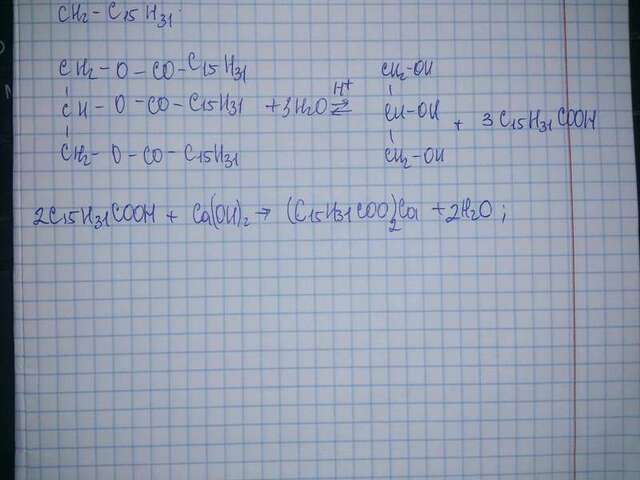 CH₂ - C₁₅H₃₁
CH₂ - O - CO - C₁₅H₃₁ CH₂-OH
CH - O - CO - C₁₅H₃₁ + 3H₂O ⇌ H⁺ CH-OH + 3C₁₅H₃₁COOH
CH₂ - O - CO - C₁₅H₃₁ CH₂-OH
2C₁₅H₃₁COOH + Ca(OH)₂ → (C₁₅H₃₁COO)₂Ca + 2H₂O;